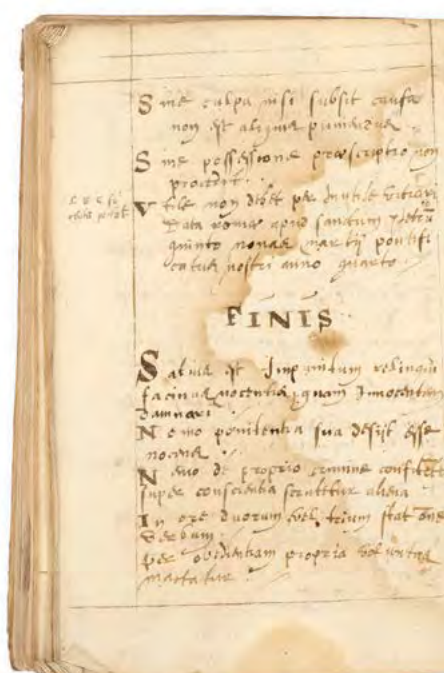 Sine culpa nisi subsit causa
non est aliquis puniendus
Sine possessione prescriptio non
procedit
Vtile non debet per inutile vitiari
Data rome apud sanctum petrũ
quinto nonas martij pontifi
catus nostri anno quarto
FINIS
est Impunitum relinqui
facinus nocentis quam Innocentem
damnari
Nemo penitentia sua desijt esse
nocens
Nemo de proprio crimine
super conscientia aliena
In ore duorum vel trium stat one
verbum
per obedientiam propria voluntas
mactatur